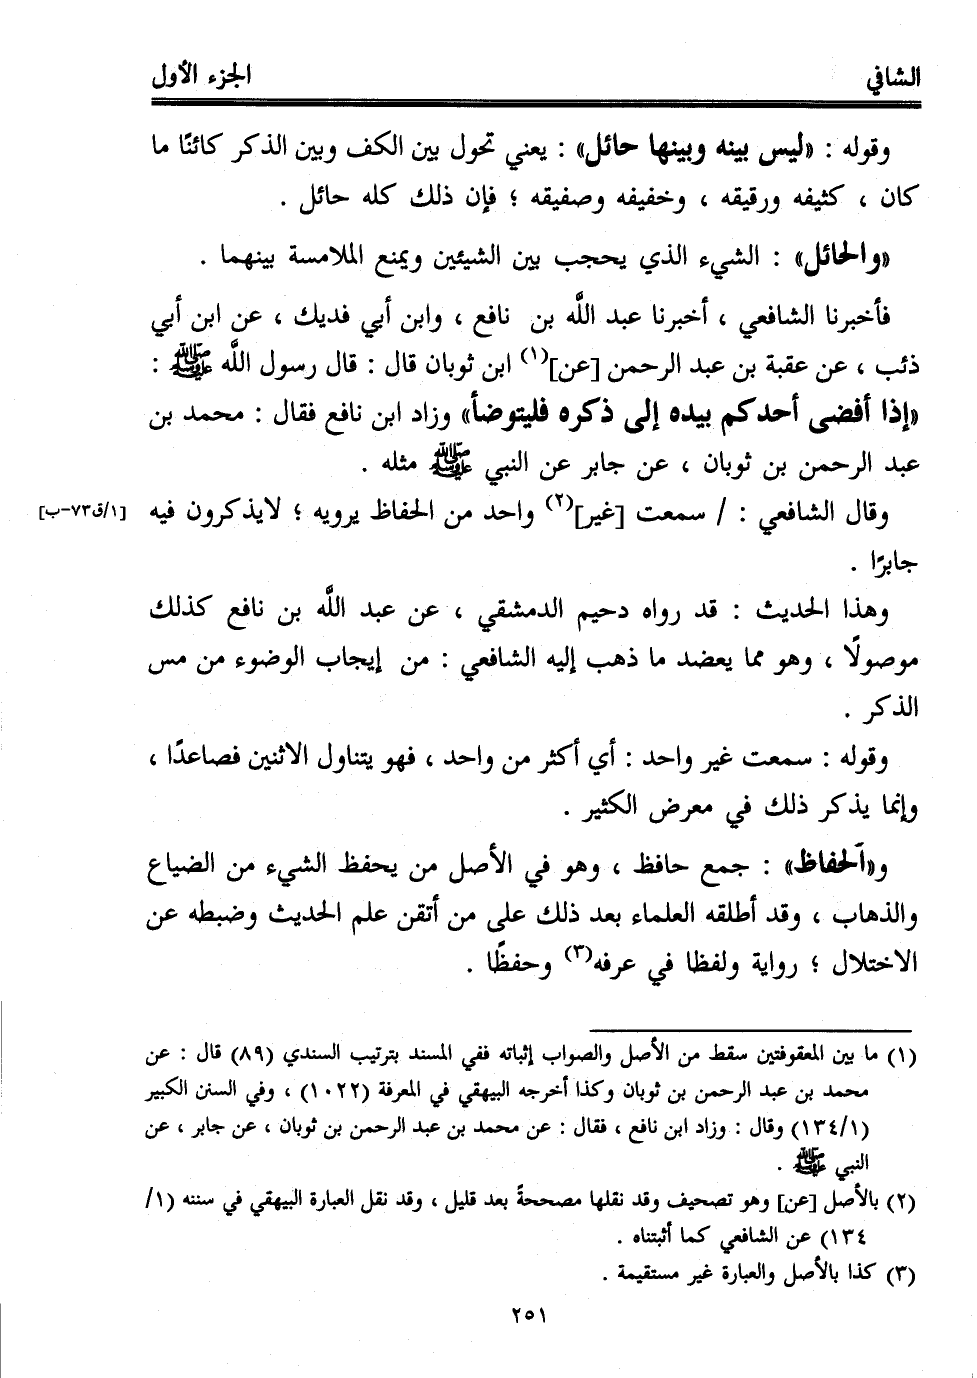 الشافي
الجزء الأول
وقوله : «ليس بينه وبينها حائل» : يعني تحول بين الكف وبين الذكر كائنًا ما
كان ، كثيفه ورقيقه ، وخفيفه وصفيقه ؛ فإن ذلك كله حائل .
«والحائل» : الشيء الذي يحجب بين الشيئين ويمنع الملامسة بينهما .
فأخبرنا الشافعي ، أخبرنا عبد اللَّه بن نافع ، وابن أبي فديك ، عن ابن أبي
ذئب ، عن عقبة بن عبد الرحمن [عن](١) ابن ثوبان قال : قال رسول اللَّه ﷺ :
«إذا أفضى أحدكم بيده إلى ذكره فليتوضأ» وزاد ابن نافع فقال : محمد بن
عبد الرحمن بن ثوبان ، عن جابر عن النبي ﷺ مثله .
وقال الشافعي : / سمعت [غير](٢) واحد من الحفاظ يرويه ؛ لايذكرون فيه
[١/ق٧٣-ب]
جابرًا .
وهذا الحديث : قد رواه دحيم الدمشقي ، عن عبد اللَّه بن نافع كذلك
موصولًا ، وهو مما يعضد ما ذهب إليه الشافعي : من إيجاب الوضوء من مس
الذكر .
وقوله : سمعت غير واحد : أي أكثر من واحد ، فهو يتناول الاثنين فصاعدًا ،
وإنما يذكر ذلك في معرض الكثير .
و«الحفاظ» : جمع حافظ ، وهو في الأصل من يحفظ الشيء من الضياع
والذهاب ، وقد أطلقه العلماء بعد ذلك على من أتقن علم الحديث وضبطه عن
الاختلال ؛ رواية ولفظا في عرفه(٣) وحفظًا .
(١) ما بين المعقوفتين سقط من الأصل والصواب إثباته ففي المسند بترتيب السندي (٨٩) قال : عن
محمد بن عبد الرحمن بن ثوبان وكذا أخرجه البيهقي في المعرفة (١٠٢٢) ، وفي السنن الكبير
(١٣٤/١) وقال : وزاد ابن نافع ، فقال : عن محمد بن عبد الرحمن بن ثوبان ، عن جابر ، عن
النبي ﷺ .
(٢) بالأصل [عن] وهو تصحيف وقد نقلها مصححةً بعد قليل ، وقد نقل العبارة البيهقي في سننه (١/
١٣٤) عن الشافعي كما أثبتناه .
(٣) كذا بالأصل والعبارة غير مستقيمة .
٢٥١